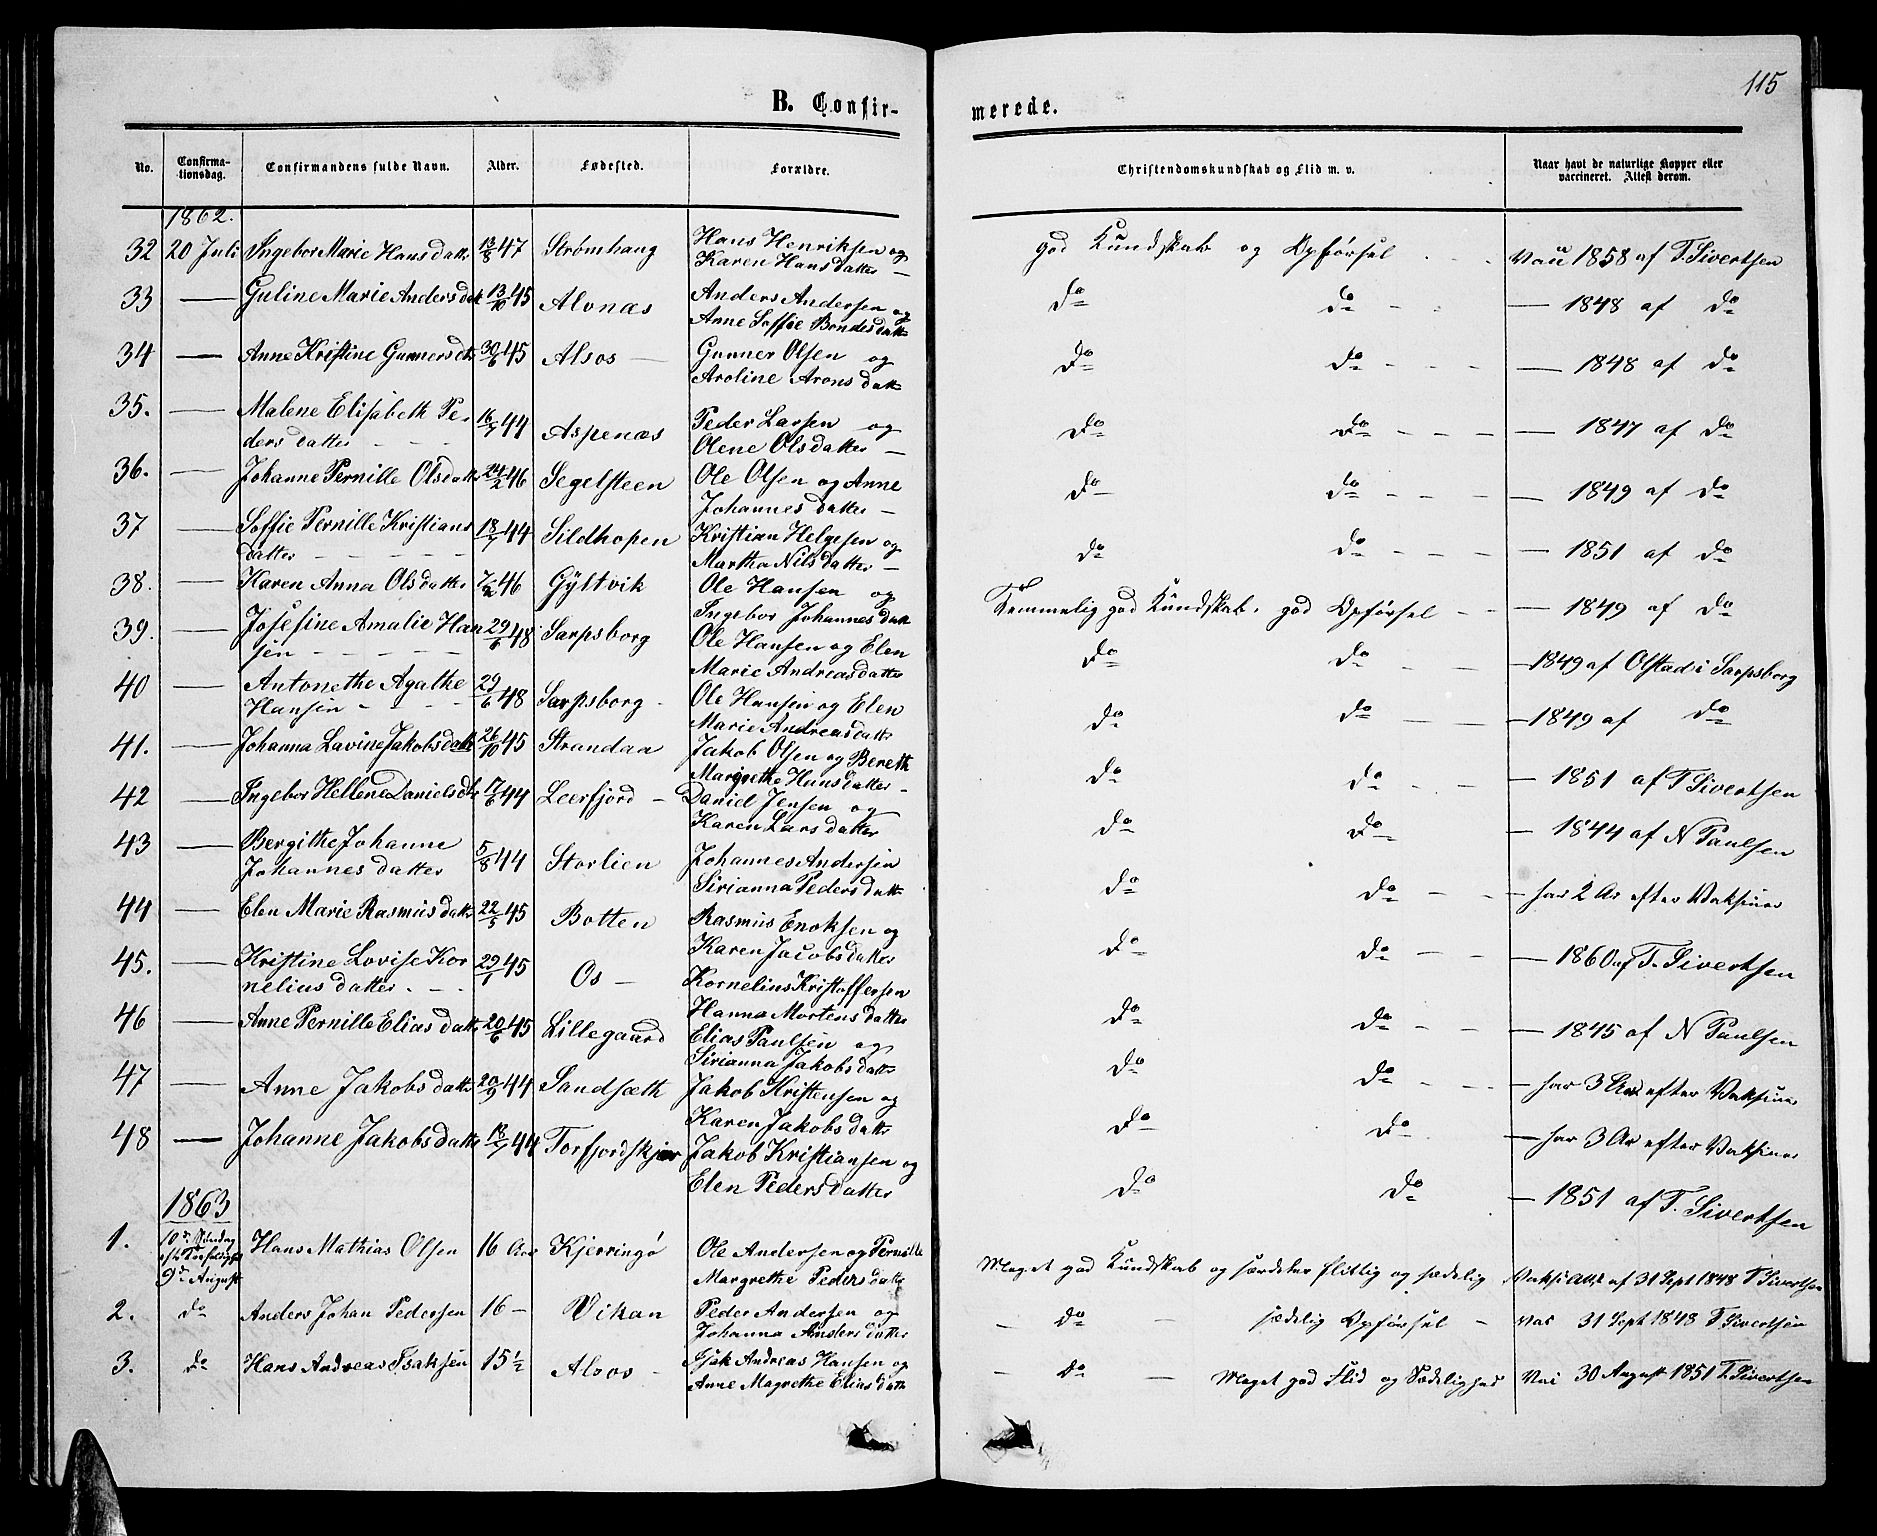 115
B. Confir-
merede.
No.
Confirma-
tionsdag.
Confirmandens fulde Navn.
Alder.
Fødested.
Forældre.
Christendomskundskab og Flid m. v.
Naar havt de naturlige Kopper eller
vaccineret. Attest derom.
1862.
32 20 Juli Ingebor Marie Hansdatter 13/8 47 Strømhaug Hans Henriksen og
Karen Hansdatter — god Kundskab og Opførsel - - - Vau 1858 af T. Sivertsen
33 — Guline Marie Andersdatt 13/10 45 Alvnæs Anders Andersen og
Anne Soffie Bendesdatt Do Do - - — 1848 af Do
34 — Anne Kristine Gunnersdtr 30/6 45 Alsos — Gunner Olsen og
Aroline Aronsdatt Do Do - - - — 1848 af Do
35. — Malene Elisabeth Pe-
dersdatter - - - 16/7 44 Aspenæs Peder Larsen og
Olene Olsdatter — Do Do - - - — 1847 af Do
36. — Johanne Pernille Olsdatter 24/2 46 Segelsteen Ole Olsen og Anne
Johannesdatter — Do Do - - - — 1849 af Do
37 — Soffie Pernille Kristians
datter - - - - - 18/7 44 Sildhopen Kristian Helgesen og
Martha Nilsdatter — Do Do - - - — 1851 af Do
38. — Karen Anna Olsdatter 7/2 46 Gyltvik Ole Hansen og
Ingebor Johannesdatt Temmelig god Kundskab, god Opførsel - - — 1849 af Do
39. — Josefine Amalie Han
sen - - - - - 29/6 48 Sarpsborg Ole Hansen og Elen
Marie Andreasdatter Do Do - - — 1849 af Olstad i Sarpsborg
40 — Antonethe Agathe
Hansen - - - - 29/6 48 Sarpsborg - Ole Hansen og Elen
Marie Andreasdatter Do Do - - — 1849 af Do
41. — Johanna Lavine Jakobsdatt 26/10 45 Strandaa Jakob Olsen og Bereth
Margrethe Hansdatter - Do Do - - — 1851 af T Sivertsen
42 — Ingebor Hellene Danielsdtr 17/6 44 Leerfjord - Daniel Jensen og
Karen Larsdatter Do Do — 1844 af N Paulsen
43 — Bergithe Johanne
Johannesdatter 5/8 44 Storlien Johannes Andersen
Sirianna Pedersdatt Do Do - - — har 2 Ar efter Vaksiner
44 — Elen Marie Rasmusdatt 22/5 45 Botten Rasmus Enoksen og
Karen Jacobsdatter Do Do - - — 1860 af T. Sivertsen
45. — Kristine Lovise Kor
neliusdatter. - - 29/1 45 Os — Kornelius Kristoffersen
Hanna Mortensdatter Do Do - - — 1845 af N Paulsen
46 — Anne Pernille Eliasdatt 20/6 45 Lillegaard Elias Paulsen og
Sirianna Jakobsdatt Do Do - - — har 3 efter Vaksiner
47 — Anne Jakobsdatter 20/9 44 Sandsæth Jakob Kristensen og
Karen Jakobsdatt Do Do — har 3 Ar efter Vaksiner
48 — Johanne Jakobsdatt 18/7 44 Torfjordskjær Jakob Kristiansen og
Elen Pedersdatter Do Do — 1851 af T. Sivertsen
1863
1. 10de Søndag
eft Trefoligh
9de August Hans Mathias Olsen 16 Aar Kjerringö Ole Andersen og Pernille
Margrethe Pedersdatt Meget god Kundskab og særdeles flittig og sædelig Vaksi att af 31 Sept 1848 T Sivertsen
2. do Anders Johan Pedersen 16 — Vikan Peder Andersen og
Johanna Andersdatter — Do — sædelig Opførsel - Vas 31 Sept 1848 T Sivertsen
3. do Hans Andreas Isaksen 15 1/2 Alsos - Isak Andreas Hansen og
Anne Magrethe Eliasdatt — Do — Meget god Flid og Sædelighed Vai 30 August 1851 T. Sivertsen